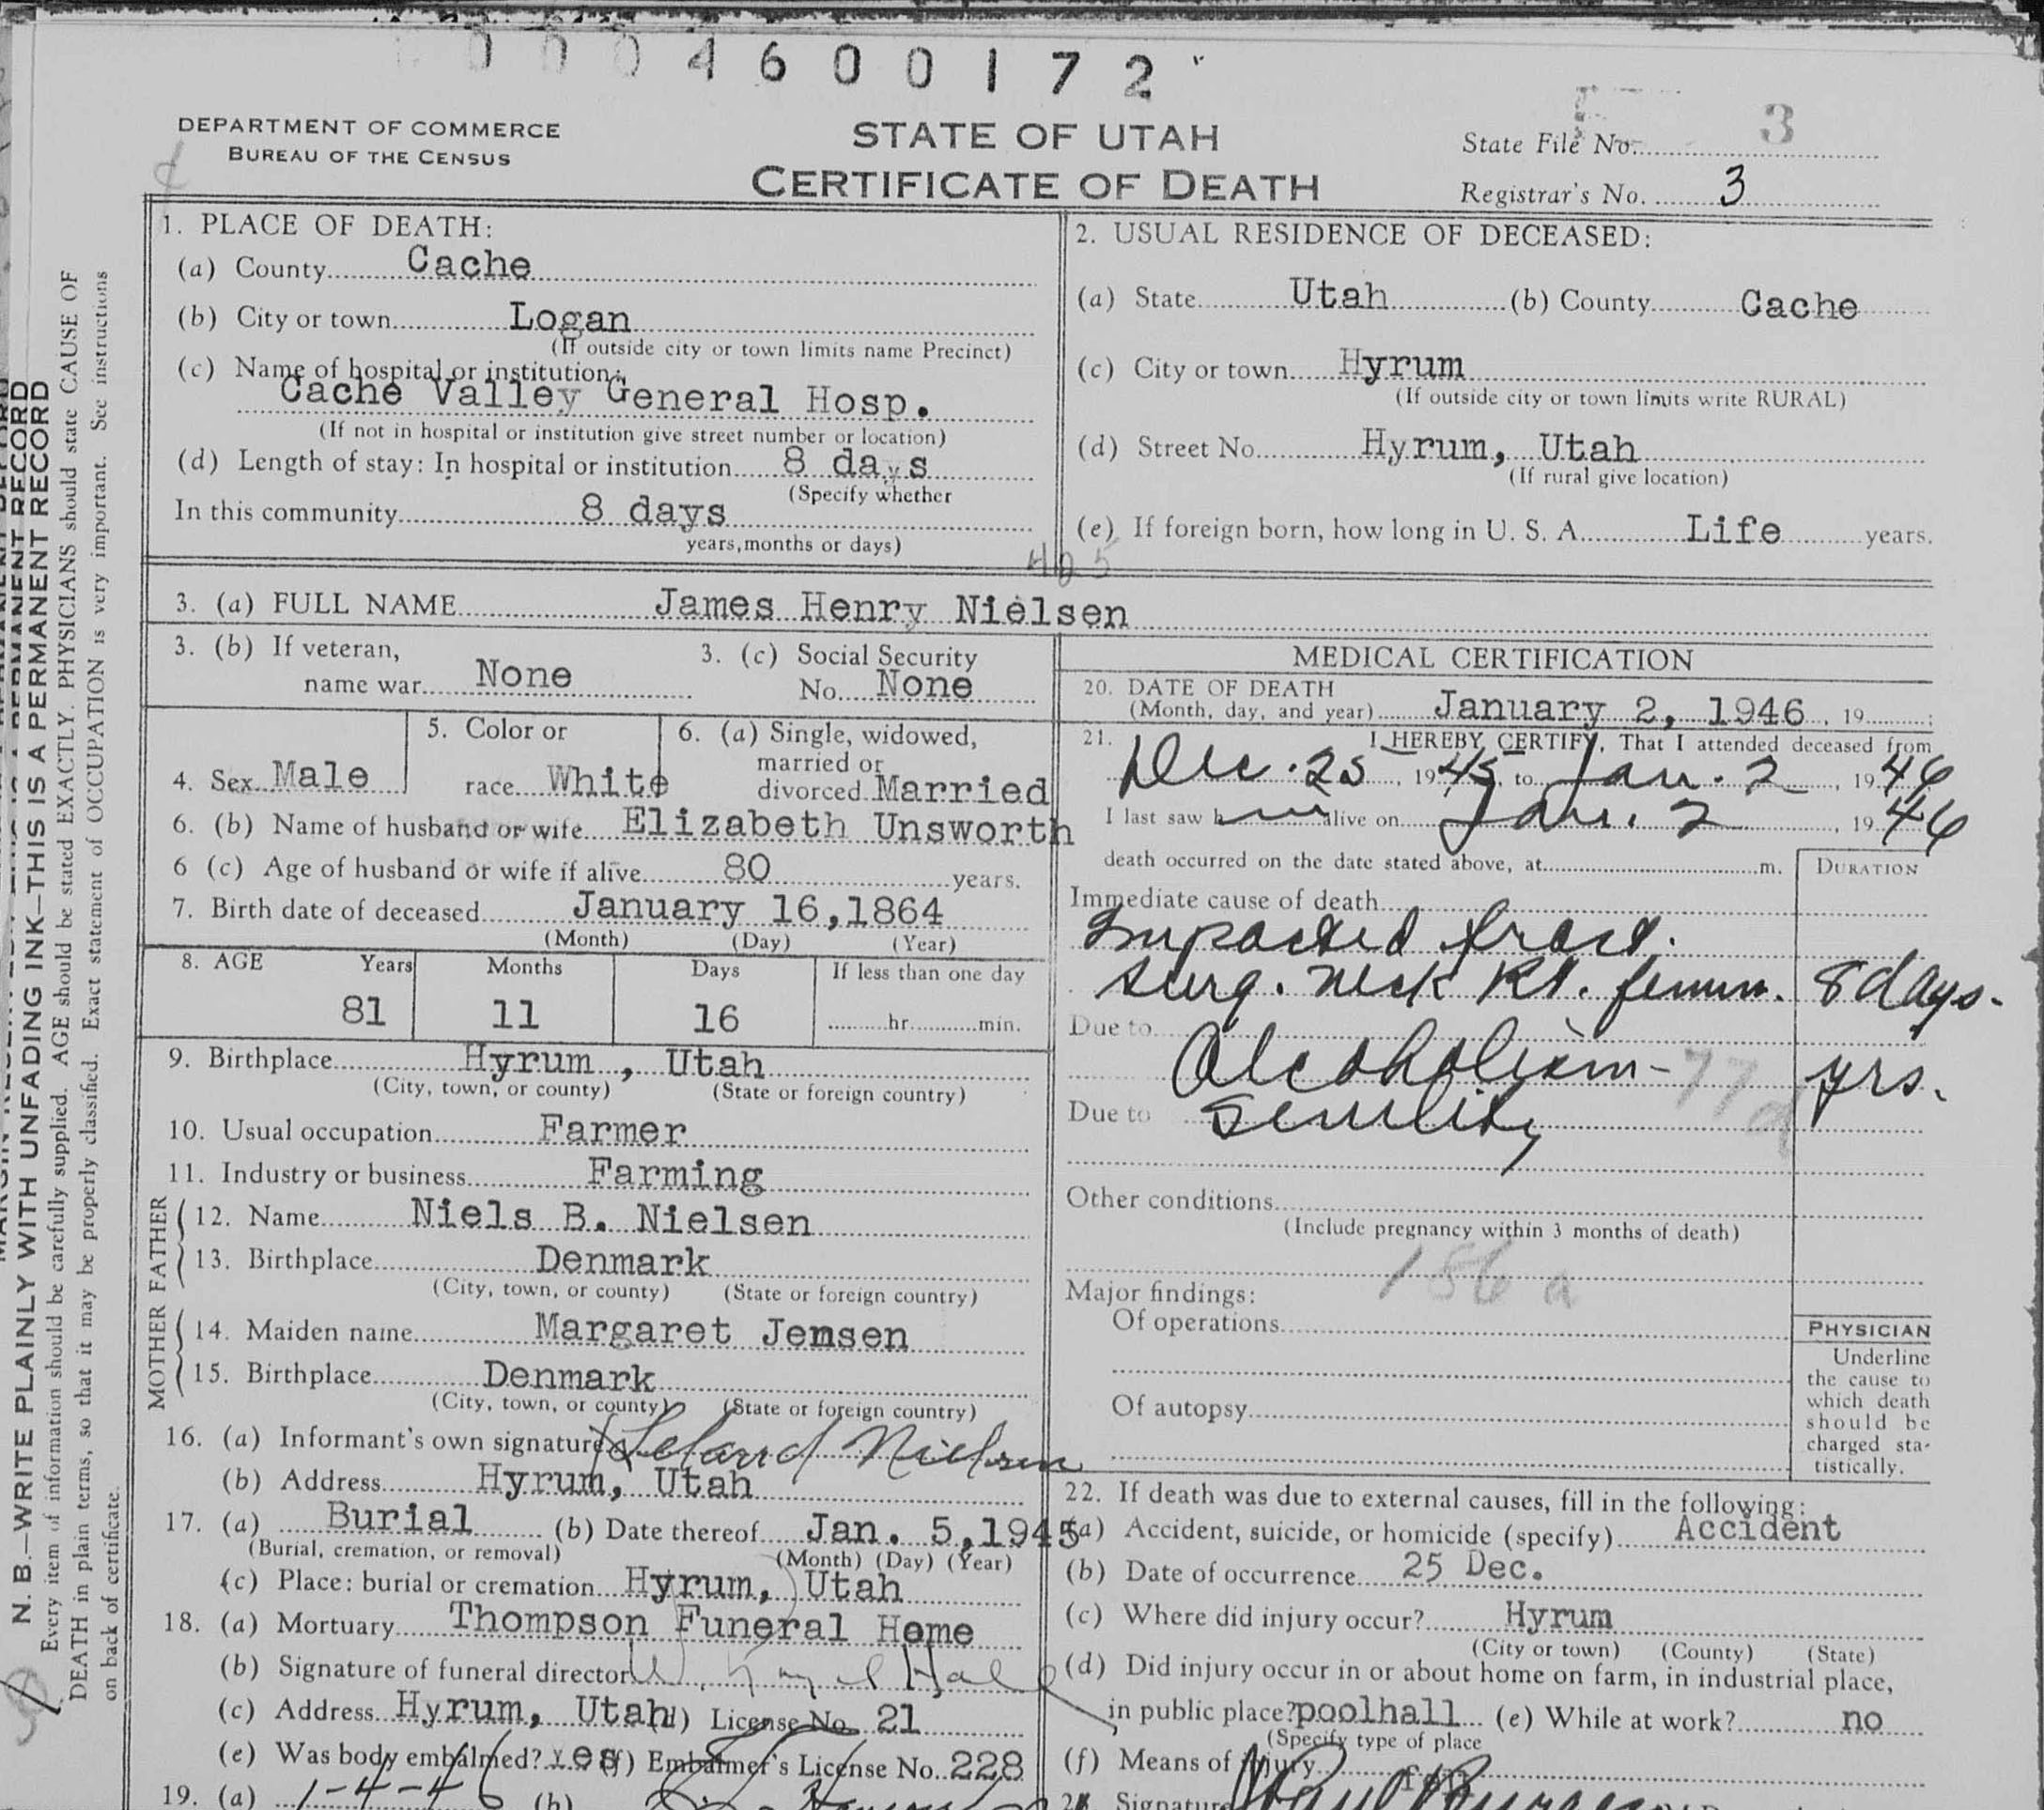 0004600172
DEPARTMENT OF COMMERCE
BUREAU OF THE CENSUS
STATE OF UTAH
CERTIFICATE OF DEATH
State File No. 3
Registrar's No. 3
1. PLACE OF DEATH:
(a) County Cache
(b) City or town Logan
(If outside city or town limits name Precinct)
(c) Name of hospital or institution:
Cache Valley General Hosp.
(If not in hospital or institution give street number or location)
(d) Length of stay: In hospital or institution 8 days
(Specify whether
In this community 8 days
years, months or days)
2. USUAL RESIDENCE OF DECEASED:
(a) State Utah (b) County Cache
(c) City or town Hyrum
(If outside city or town limits write RURAL)
(d) Street No. Hyrum, Utah
(If rural give location)
(e) If foreign born, how long in U. S. A. Life years.
405
3. (a) FULL NAME James Henry Nielsen
3. (b) If veteran,
name war None
3. (c) Social Security
No. None
4. Sex Male
5. Color or
race White
6. (a) Single, widowed,
married or
divorced Married
6. (b) Name of husband or wife Elizabeth Unsworth
6 (c) Age of husband or wife if alive 80 years.
7. Birth date of deceased January 16, 1864
(Month) (Day) (Year)
8. AGE Years Months Days If less than one day
81 11 16 hr. min.
9. Birthplace Hyrum, Utah
(City, town, or county) (State or foreign country)
10. Usual occupation Farmer
11. Industry or business Farming
FATHER
12. Name Niels B. Nielsen
13. Birthplace Denmark
(City, town, or county) (State or foreign country)
MOTHER
14. Maiden name Margaret Jensen
15. Birthplace Denmark
(City, town, or county) (State or foreign country)
16. (a) Informant's own signature Leland Nielsen
(b) Address Hyrum, Utah
17. (a) Burial (b) Date thereof Jan. 5, 1945
(Burial, cremation, or removal) (Month) (Day) (Year)
(c) Place: burial or cremation Hyrum, Utah
18. (a) Mortuary Thompson Funeral Home
(b) Signature of funeral director Hall
(c) Address Hyrum, Utah (d) License No. 21
(e) Was body embalmed? Yes (f) Embalmer's License No. 228
19. (a) 1-4-46 (b)
MEDICAL CERTIFICATION
20. DATE OF DEATH
(Month, day, and year) January 2, 1946, 19 ;
21. I HEREBY CERTIFY, That I attended deceased from
Dec. 25, 1945, to Jan. 2, 1946
I last saw him alive on Jan. 2, 1946
death occurred on the date stated above, at m.
DURATION
Immediate cause of death
Impacted fract.
surg. neck Rt. femur. 8 days.
Due to
Alcoholism - yrs.
77d
Due to Senility
Other conditions
(Include pregnancy within 3 months of death)
186a
Major findings:
Of operations
Of autopsy
PHYSICIAN
Underline
the cause to
which death
should be
charged sta-
tistically.
22. If death was due to external causes, fill in the following:
(a) Accident, suicide, or homicide (specify) Accident
(b) Date of occurrence 25 Dec.
(c) Where did injury occur? Hyrum
(City or town) (County) (State)
(d) Did injury occur in or about home on farm, in industrial place,
in public place? poolhall (e) While at work? no
(Specify type of place
(f) Means of injury fell
Signature
N. B.—WRITE PLAINLY WITH UNFADING INK—THIS IS A PERMANENT RECORD
Every item of information should be carefully supplied. AGE should be stated EXACTLY. PHYSICIANS should state CAUSE OF
DEATH in plain terms, so that it may be properly classified. Exact statement of OCCUPATION is very important. See instructions
on back of certificate.